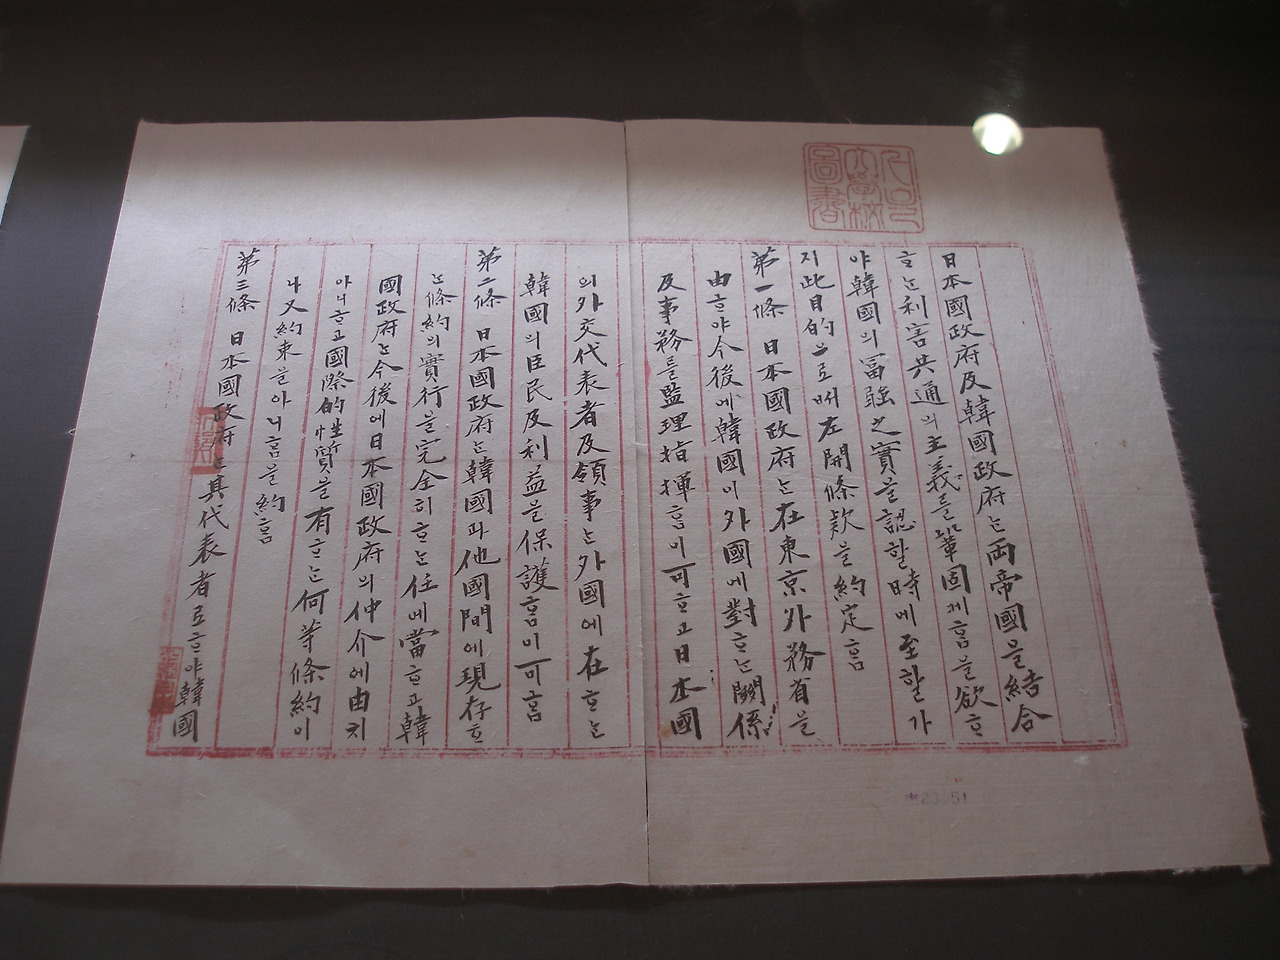 서울
大學校
圖書
日本國政府及韓國政府는両帝國을結合
ᄒᆞ는利害共通의主義를鞏固케ᄒᆞᆷ을欲ᄒᆞ
야韓國의冨强之實을認할時에至할가
지此目的으로써左開條款을約定ᄒᆞᆷ
第一條 日本國政府는在東京外務省을
由ᄒᆞ야今後에韓國이外國에對ᄒᆞ는關係
及事務를監理指揮ᄒᆞᆷ이可ᄒᆞ고日本國
의外交代表者及領事는外國에在ᄒᆞ는
韓國의臣民及利益을保護ᄒᆞᆷ이可ᄒᆞᆷ
第二條 日本國政府는韓國과他國間에現存ᄒᆞ
는條約의實行을完全히ᄒᆞ는任에當ᄒᆞ고韓
國政府는今後에日本國政府의仲介에由치
아니ᄒᆞ고國際的性質을有ᄒᆞ는何等條約이
나又約束을아니ᄒᆞᆷ을約ᄒᆞᆷ
第三條 日本國政府는其代表者로ᄒᆞ야韓國